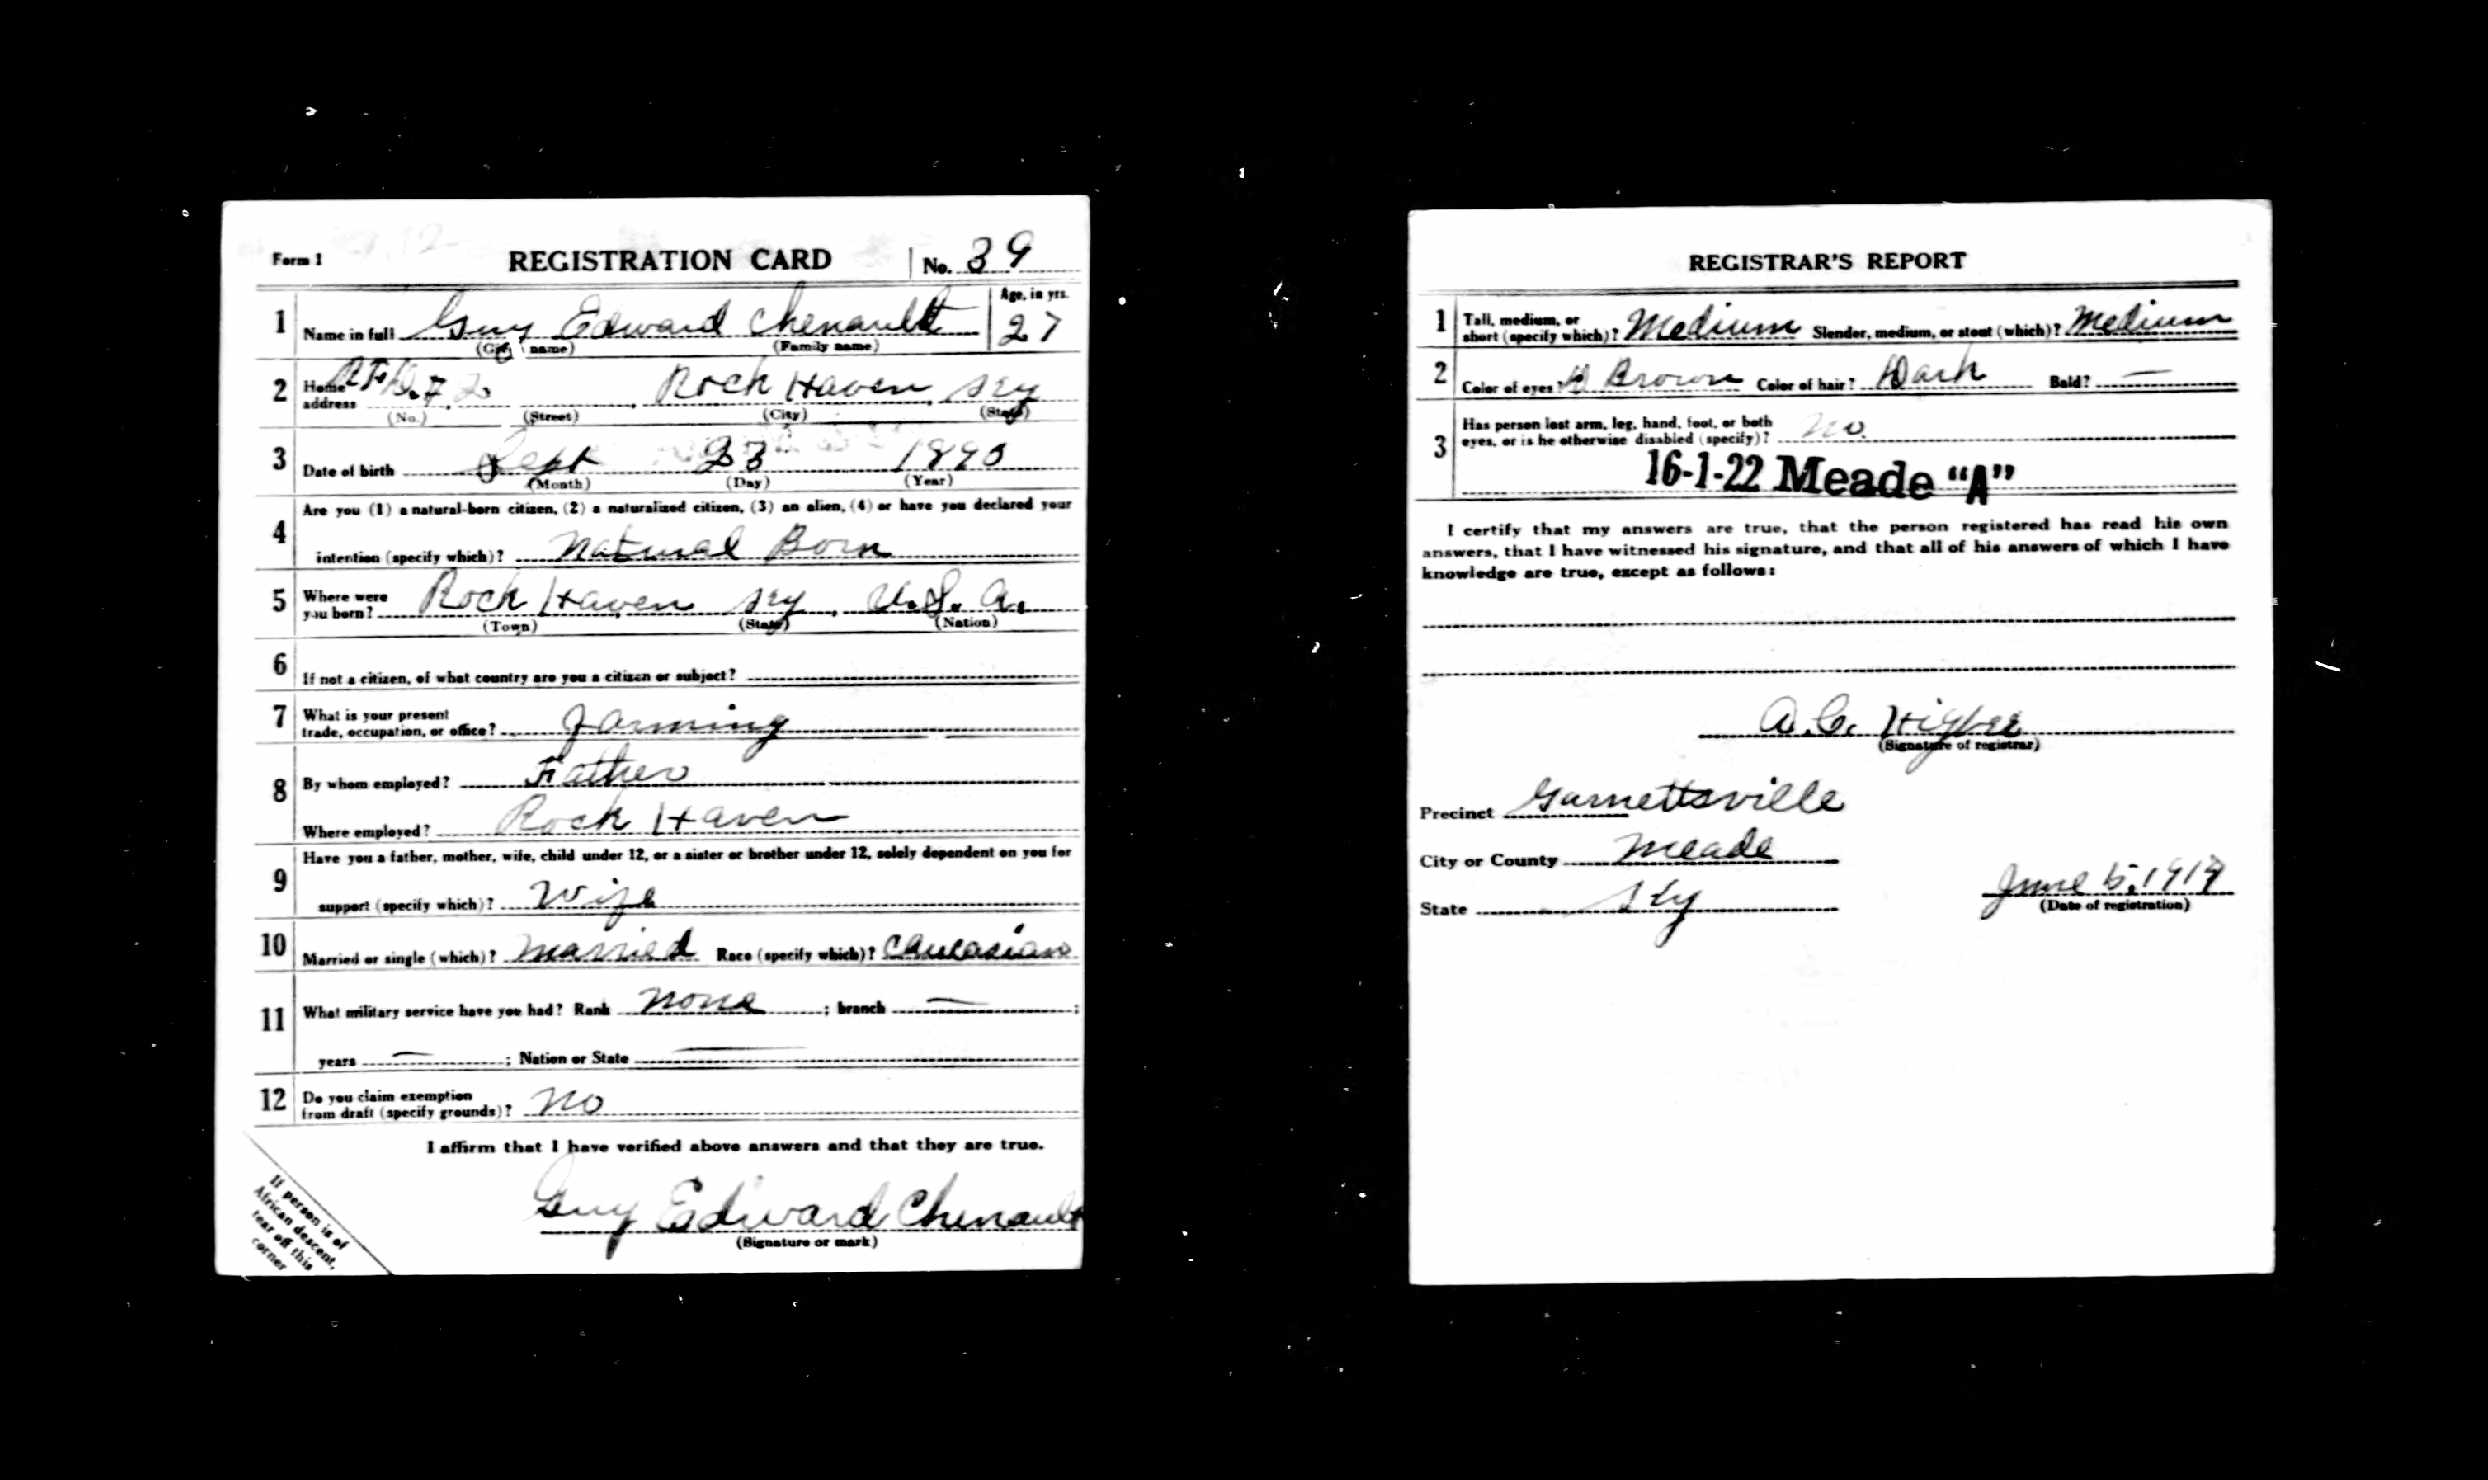 Form 1 REGISTRATION CARD No. 39
1 Name in full Guy Edward Chenault Age, in yrs. 27
(Given name) (Family name)
2 Home address R.F.D. # 2 Rock Haven Ky
(No.) (Street) (City) (State)
3 Date of birth Sept 23 1890
(Month) (Day) (Year)
4 Are you (1) a natural-born citizen, (2) a naturalized citizen, (3) an alien, (4) or have you declared your
intention (specify which)? Natural Born
5 Where were you born? Rock Haven Ky, U.S.A.
(Town) (State) (Nation)
6 If not a citizen, of what country are you a citizen or subject?
7 What is your present trade, occupation, or office? Farming
8 By whom employed? Father
Where employed? Rock Haven
9 Have you a father, mother, wife, child under 12, or a sister or brother under 12, solely dependent on you for
support (specify which)? Wife
10 Married or single (which)? Married Race (specify which)? Caucasian
11 What military service have you had? Rank None ; branch — ;
years — ; Nation or State —
12 Do you claim exemption from draft (specify grounds)? No
I affirm that I have verified above answers and that they are true.
Guy Edward Chenault
(Signature or mark)
If person is of
African descent,
tear off this
corner
REGISTRAR'S REPORT
1 Tall, medium, or short (specify which)? Medium Slender, medium, or stout (which)? Medium
2 Color of eyes? Brown Color of hair? Dark Bald? —
3 Has person lost arm, leg, hand, foot, or both
eyes, or is he otherwise disabled (specify)? No.
16-1-22 Meade "A"
I certify that my answers are true, that the person registered has read his own
answers, that I have witnessed his signature, and that all of his answers of which I have
knowledge are true, except as follows:
A.C. Higbee
(Signature of registrar)
Precinct Garnettsville
City or County Meade
State Ky
June 5, 1917
(Date of registration)